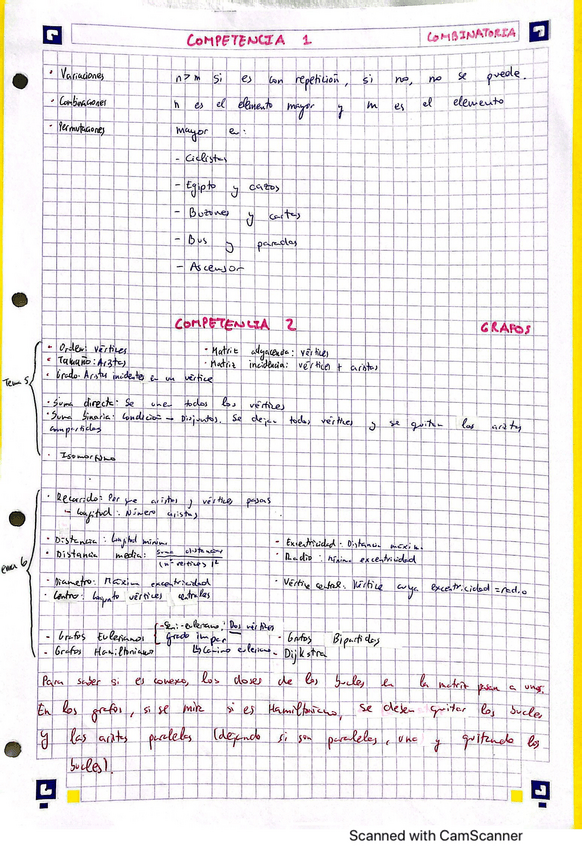 COMPETENCIA 1
COMBINATORIA
· Variaciones
n>m si es con repetición, si no, no se puede.
· Combinaciones
n es el elemento mayor y m es el elemento
· Permutaciones
mayor e:
- Ciclistas
- Egipto y cazos
- Buzones y cartas
- Bus y paradas
- Ascensor
COMPETENCIA 2
GRAFOS
Tema 5
· Orden: vértices
· Matriz adyacencia: vértices
· Tamaño: Aristas
· Matriz incidencia: vértices + aristas
· Grado: Aristas incidentes en un vértice
· Suma directa: Se unen todos los vértices
· Suma binaria: Condición → Disjuntos. Se dejan todos vértices y se quitan las aristas
compartidas
· Isomorfismo
ema 6
· Recorrido: Por que aristas y vértices pasas
- Longitud: Número aristas
· Distancia: Longitud mínima
- Excentricidad: Distancia máxima.
· Distancia media: suma distancias
(nº vértices)²
· Radio: mínima excentricidad
· Diametro: Máxima excentricidad
· Vértice central: Vértice cuya excentricidad = radio
· Centro: Conjunto vértices centrales
- Semi-euleriano: Dos vértices
· Grafos Eulerianos
grado impar
· Grafos Bipartidos
· Grafos Hamiltoniano
↳ Camino euleriano
- Dijkstra
Para saber si es conexo, los doses de los bucles en la matriz pasan a unos.
En los grafos, si se mira si es Hamiltoniano, se deben quitar los bucles
y las aristas paralelas (dejando si son paralelas, una y quitando los
bucles).
Scanned with CamScanner